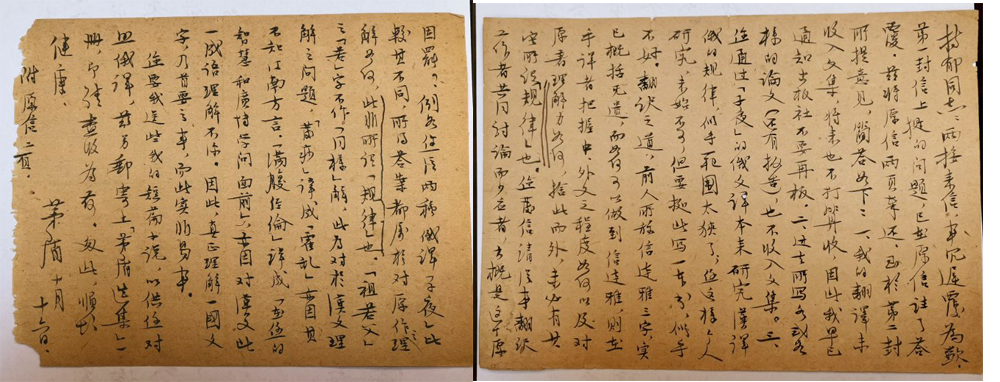 持郁同志：两接来信，事冗迟覆为歉。
第一封信上提的问题，已在原信注了答
覆，兹将原信两页寄还。至于第二封
所提意见，简答如下：一、我的翻译未
收入文集，将来也不打算收，因此我早已
通知出板社不要再板。二、过去所写各式各
样的论文（含有报告）也不收入文集。三、
您通过「子夜」的俄文译本来研究汉译
俄的规律，似乎范围太狭了；但这样个人
研究，未始不可，但要据此写一专书，似乎
不妙。翻译之道，前人所称信达雅三字，实
已概括无遗，而如何可以做到信达雅，则在
乎译者把握中、外文之程度如何以及对
原书理解力如何，捨此而外，未必有其
它所谓「规律」也。您信事翻译
工作者共同讨论而少应者，大概这是原
因罢？例如您注两种俄译「子夜」，比
较其不同，所得答案都属于对原作之理
解如何，此非所谓「规律」也。「祖老父」
之「老」字不作「同样」解，此乃对于汉文理
解之问题。「译成「霍乱」盖因其
不知江南方言，「满腹经纶」译成「在您的
智慧和广博学问面前」亦盖因对汉文此
一成语理解不深。因此，真正理解一国文
字，乃首要之事，而此实非易事。
您要我送些我的短篇小说，以供您对
照俄译，兹另邮寄上「茅盾选集」一
册，即请查收为荷。匆此，顺颂
健康。
茅盾 十月十六日
附原信二页。